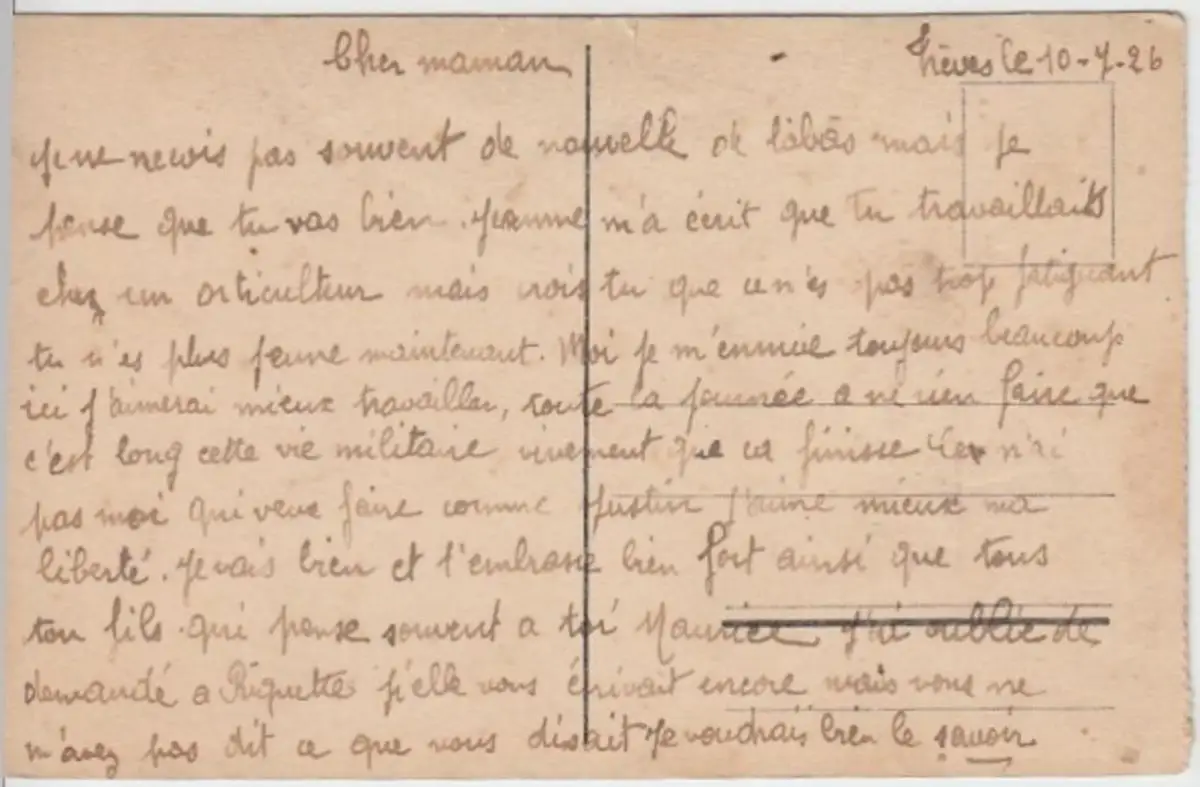 Cher maman Trèves le 10-7-26
Je ne recois pas souvent de nouvelle de labas mais je
pense que tu vas bien. Jeanne m'a écrit que tu travaillait
chez un orticulteur mais crois tu que ce n'es pas trop fatiguant
tu n'es plus jeune maintenant. Moi je m'ennuie toujours beaucoup
ici j'aimerai mieux travailler, toute la journée a ne rien faire que
c'est long cette vie militaire vivement que ca finisse
pas moi qui veux faire comme Justin j'aime mieux ma
liberté. Je vais bien et t'embrasse bien fort ainsi que tous
ton fils qui pense souvent a toi Maurice J'ai oublié de
demandé a Riquette si elle vous écrivait encore mais vous ne
m'avez pas dit ce que vous disait Je voudrais bien le savoir